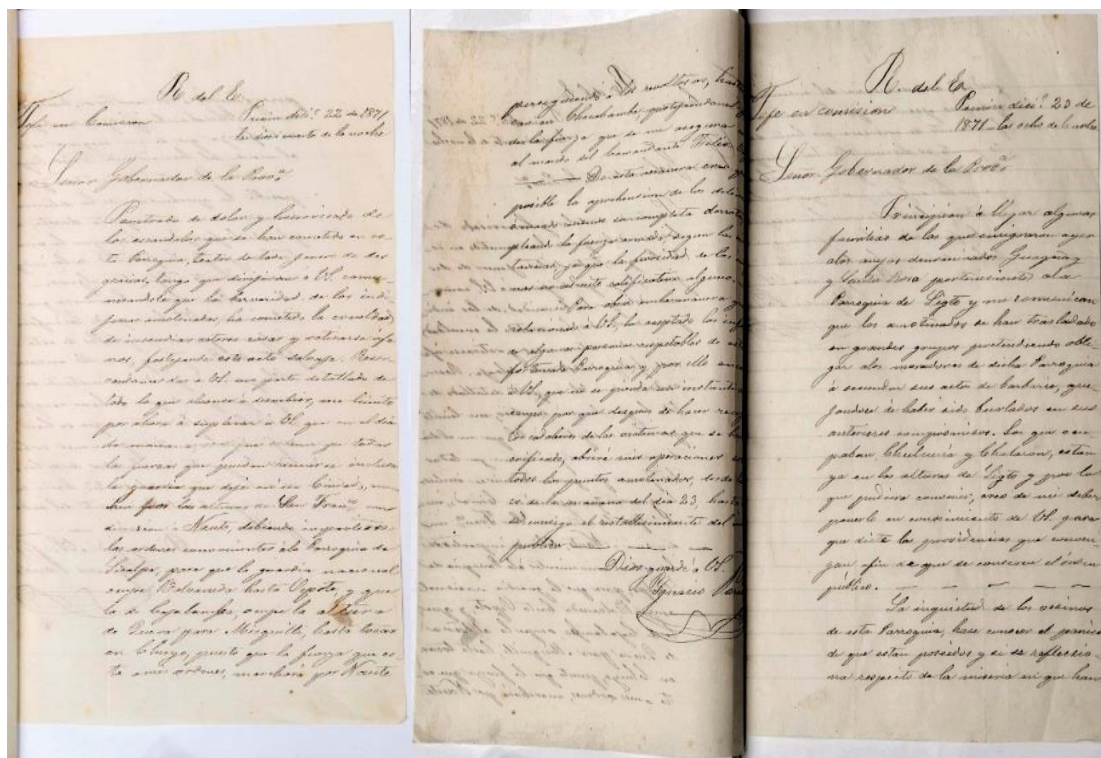 R. del E.
Jefe en Comision Punin dicº. 22 de 1871
las diez y de la noche
Señor Gobernador de la Provª
Penetrado de dolor y horrorizado de
los escandalos que se han cometido en es-
ta Parroquia, teatro de todo jenero de des-
gracias, tengo que dirijirme a VS. comu-
nicandole que la barbaridad de los indi-
jenas amotinados, ha cometido la crueldad
de incendiar varias casas y retirarse ufa-
nos, festejando este acto salvaje. Reser-
vandome dar a VS. un parte detallado de
todo lo que alcance a descubrir, me limito
por ahora á suplicar á VS. que en el dia
de mañana que toda
la fuerza que puedan reunir é inclusa
la guardia que dejé en esa Ciudad,
por las alturas de San Franº. en
direccion á Naute, debiendo impartirse
las ordenes convenientes á la Parroquia de
Licalpa, para que la guardia nacional
ocupe, hasta y que
la de Cajabamba, ocupe la altura
de para hasta tocar
en puesto que la fuerza que es-
ta a mis ordenes, marchará por Naute
persiguiendo á los revoltosos, hasta
de la fuerza que se me asegura
al mando del Comandante
De esta manera creo
posible la aprehension de los
ó cuando menos su completa derrota
pleando la fuerza armada segun las
ya que la ferocidad de los
no admite calificativo alguno.
Para obrar
á VS. he aceptado los
de algunas personas respetables de esta
fortunada Parroquia, y por ello
á VS. que no se pierda un instante
tiempo, por que despues de hacer
los cadaveres de las victimas que se han
abriré mis operaciones
todos los puntos amotinados, desde las
de la mañana del dia 23, hasta
conseguir el restablecimiento del
publico.
Dios guarde á VS.
Ignacio
R. del E.
Jefe en comisión Punin dicº. 23 de
1871 — las ocho de la noche
Señor Gobernador de la Provª
Principian á llegar algunas
familias de las que emigraron ayer
a los anejos denominados Guagñag
y Santa Rosa pertenecientes a la
Parroquia de Licto y me comunican
que los amotinados se han trasladado
en grandes grupos pretendiendo obli-
gar a los moradores de dicha Parroquia
á secundar sus actos de barbarie, que-
jandose de haber sido burlados en sus
anteriores compromisos. Los que ocu-
paban, Chulcuna y Chalaran, estan
ya en las alturas de Licto y por lo
que pudiera convenir, creo de mi deber
ponerlo en conocimiento de VS. para
que dicte las providencias que conven-
gan, afin de que se conserve el órden
público.
La inquietud de los vecinos
de esta Parroquia, hace conocer el panico
de que estan poseidos y si se reflecsio-
na respecto de la miseria en que han